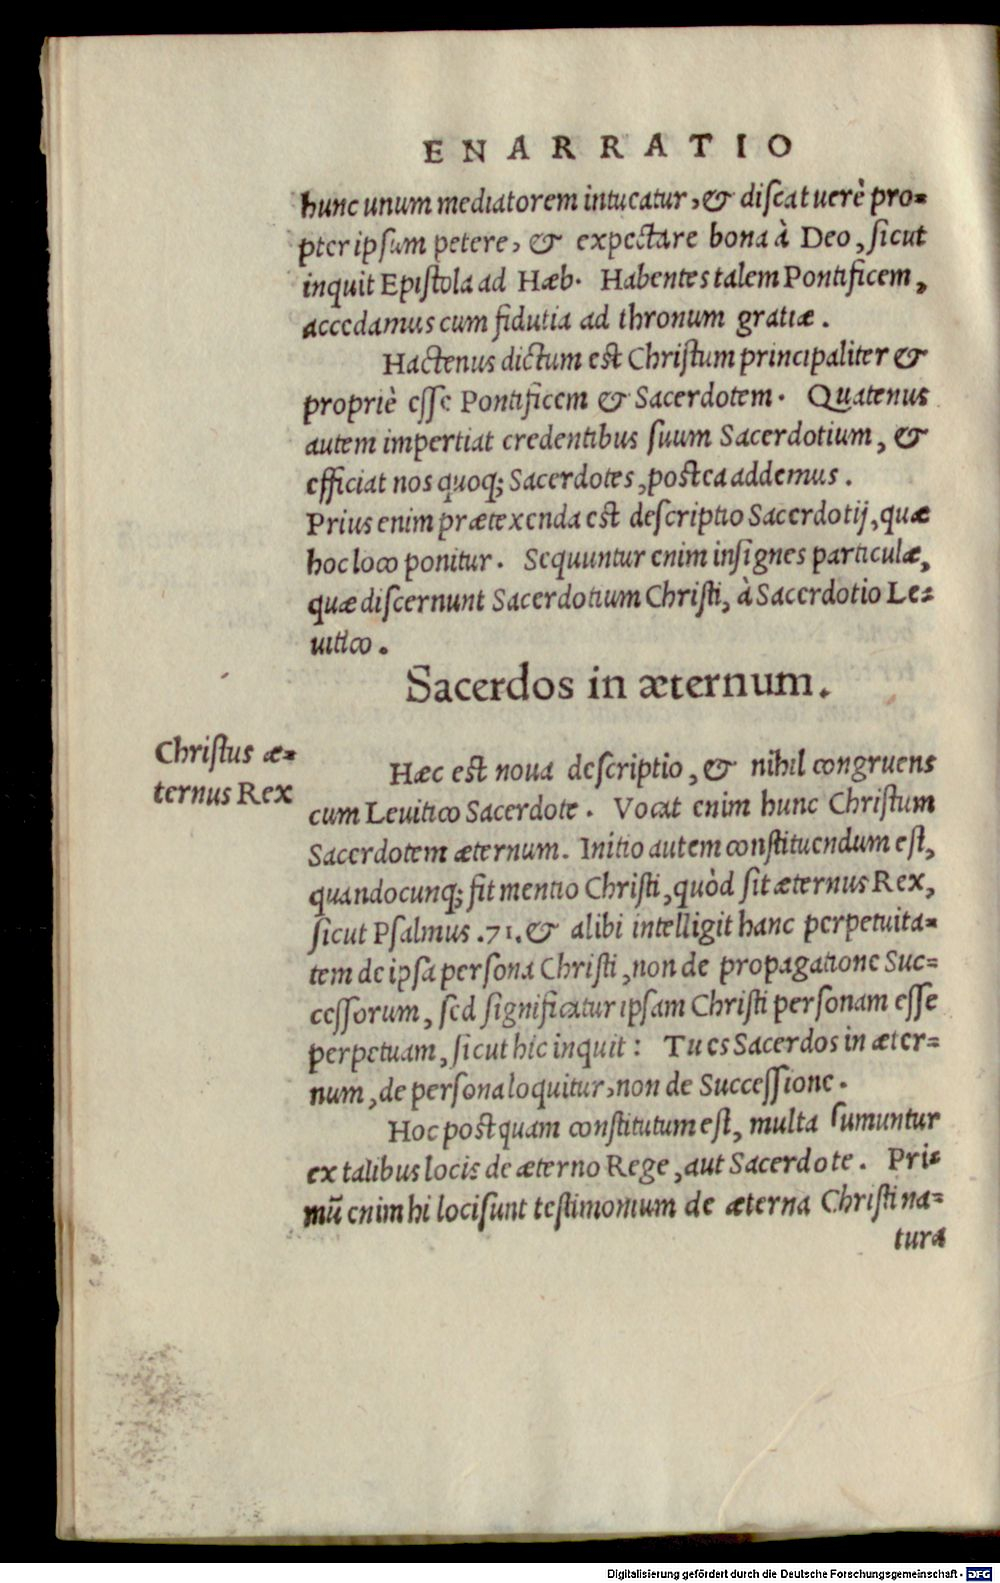 ENARRATIO
hunc unum mediatorem intueatur, & discat uerè pro-
pter ipsum petere, & expectare bona à Deo, sicut
inquit Epistola ad Hæb. Habentes talem Pontificem,
accedamus cum fidutia ad thronum gratiæ.
Hactenus dictum est Christum principaliter &
propriè esse Pontificem & Sacerdotem. Quatenus
autem impertiat credentibus suum Sacerdotium, &
efficiat nos quoq; Sacerdotes, postea addemus.
Prius enim prætexenda est descriptio Sacerdotij, quæ
hoc loco ponitur. Sequuntur enim insignes particulæ,
quæ discernunt Sacerdotium Christi, à Sacerdotio Le-
uitico.
Sacerdos in æternum.
Christus æ-
ternus Rex
Hæc est noua descriptio, & nihil congruens
cum Leuitico Sacerdote. Vocat enim hunc Christum
Sacerdotem æternum. Initio autem constituendum est,
quandocunq; fit mentio Christi, quòd sit æternus Rex,
sicut Psalmus .71. & alibi intelligit hanc perpetuita-
tem de ipsa persona Christi, non de propagatione Suc-
cessorum, sed significatur ipsam Christi personam esse
perpetuam, sicut hic inquit: Tu es Sacerdos in æter-
num, de persona loquitur, non de Successione.
Hoc postquam constitutum est, multa sumuntur
ex talibus locis de æterno Rege, aut Sacerdote. Pri-
mũ enim hi loci sunt testimonium de æterna Christi na-
tura
Digitalisierung gefördert durch die Deutsche Forschungsgemeinschaft - DFG